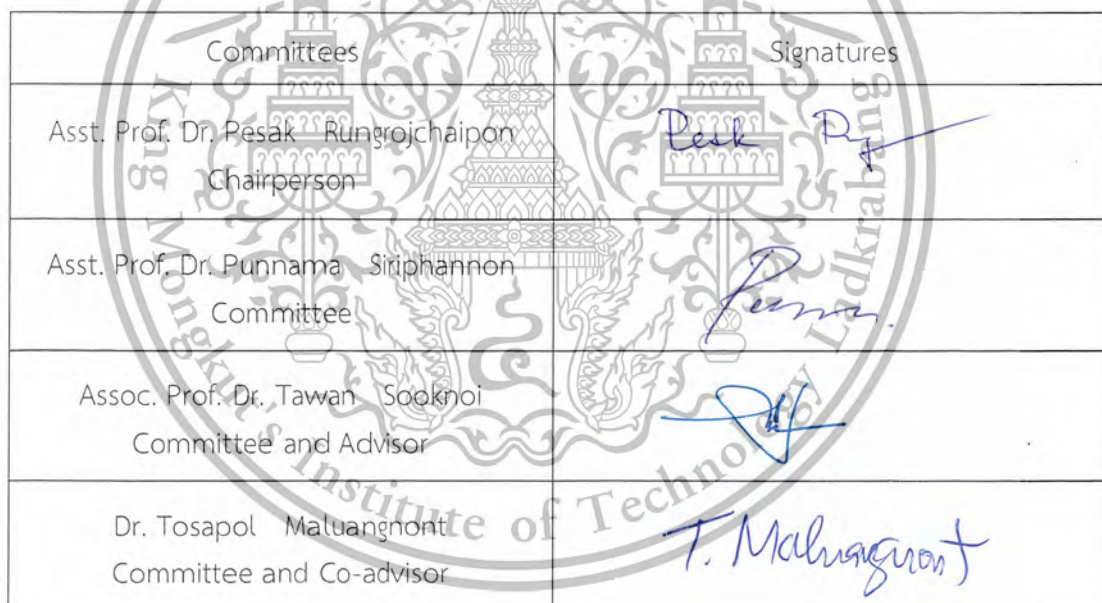 Committees Signatures
Asst. Prof. Dr. Pesak Rungrojchaipon
Chairperson
Asst. Prof. Dr. Punnama Siriphannon
Committee
Assoc. Prof. Dr. Tawan Sooknoi
Committee and Advisor
Dr. Tosapol Maluangnont
Committee and Co-advisor
T. Maluangnont
King Mongkut's Institute of Technology Ladkrabang